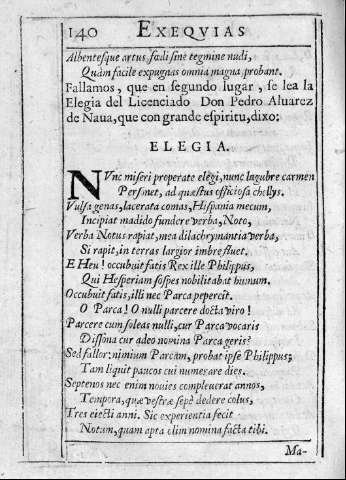 140 EXEQVIAS
Albentesque artus, fœdi sine tegmine nudi,
Quàm facile expugnas omnia magna, probant.
Fallamos, que en segundo lugar, se lea la
Elegia del Licenciado Don Pedro Aluarez
de Naua, que con grande espiritu, dixo:
ELEGIA.
NVnc miseri properate elegi, nunc lugubre carmen
Personet, ad quæstus officiosa chellys.
Vulsa genas, lacerata comas, Hispania mecum,
Incipiat madido fundere verba, Noto,
Verba Notus rapiat, mea dilachrymantia verba,
Si rapit, in terras largior imbre fluet.
E Heu! occubuit fatis Rex ille Philippus,
Qui Hesperiam sospes nobilitabat humum.
Occubuit fatis, illi nec Parca pepercit.
O Parca! O nulli parcere docta viro!
Parcere cum soleas nulli, cur Parca vocaris
Dissona cur adeo nomina Parca geris?
Sed fallor: nimium Parcam, probat ipse Philippus;
Tam liquit paucos cui numerare dies.
Septenos nec enim nouies compleuerat annos,
Tempora, quæ vestræ sepè dedere colus,
Tres eiecti anni. Sic experientia fecit
Notum, quam apta olim nomina facta tibi.
Ma-